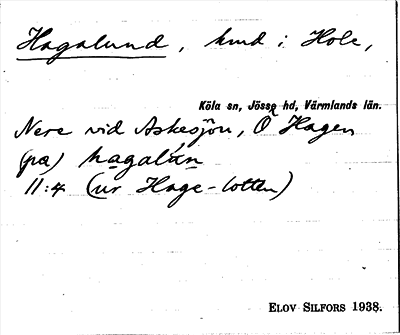 Hagalund, hmd i Hole,
Köla sn, Jösse hd, Värmlands län.
Nere vid Askesjön, Ö Hagen
(på) hagalún
11:4 (ur Hage-lotten)
ELOV SILFORS 1938.